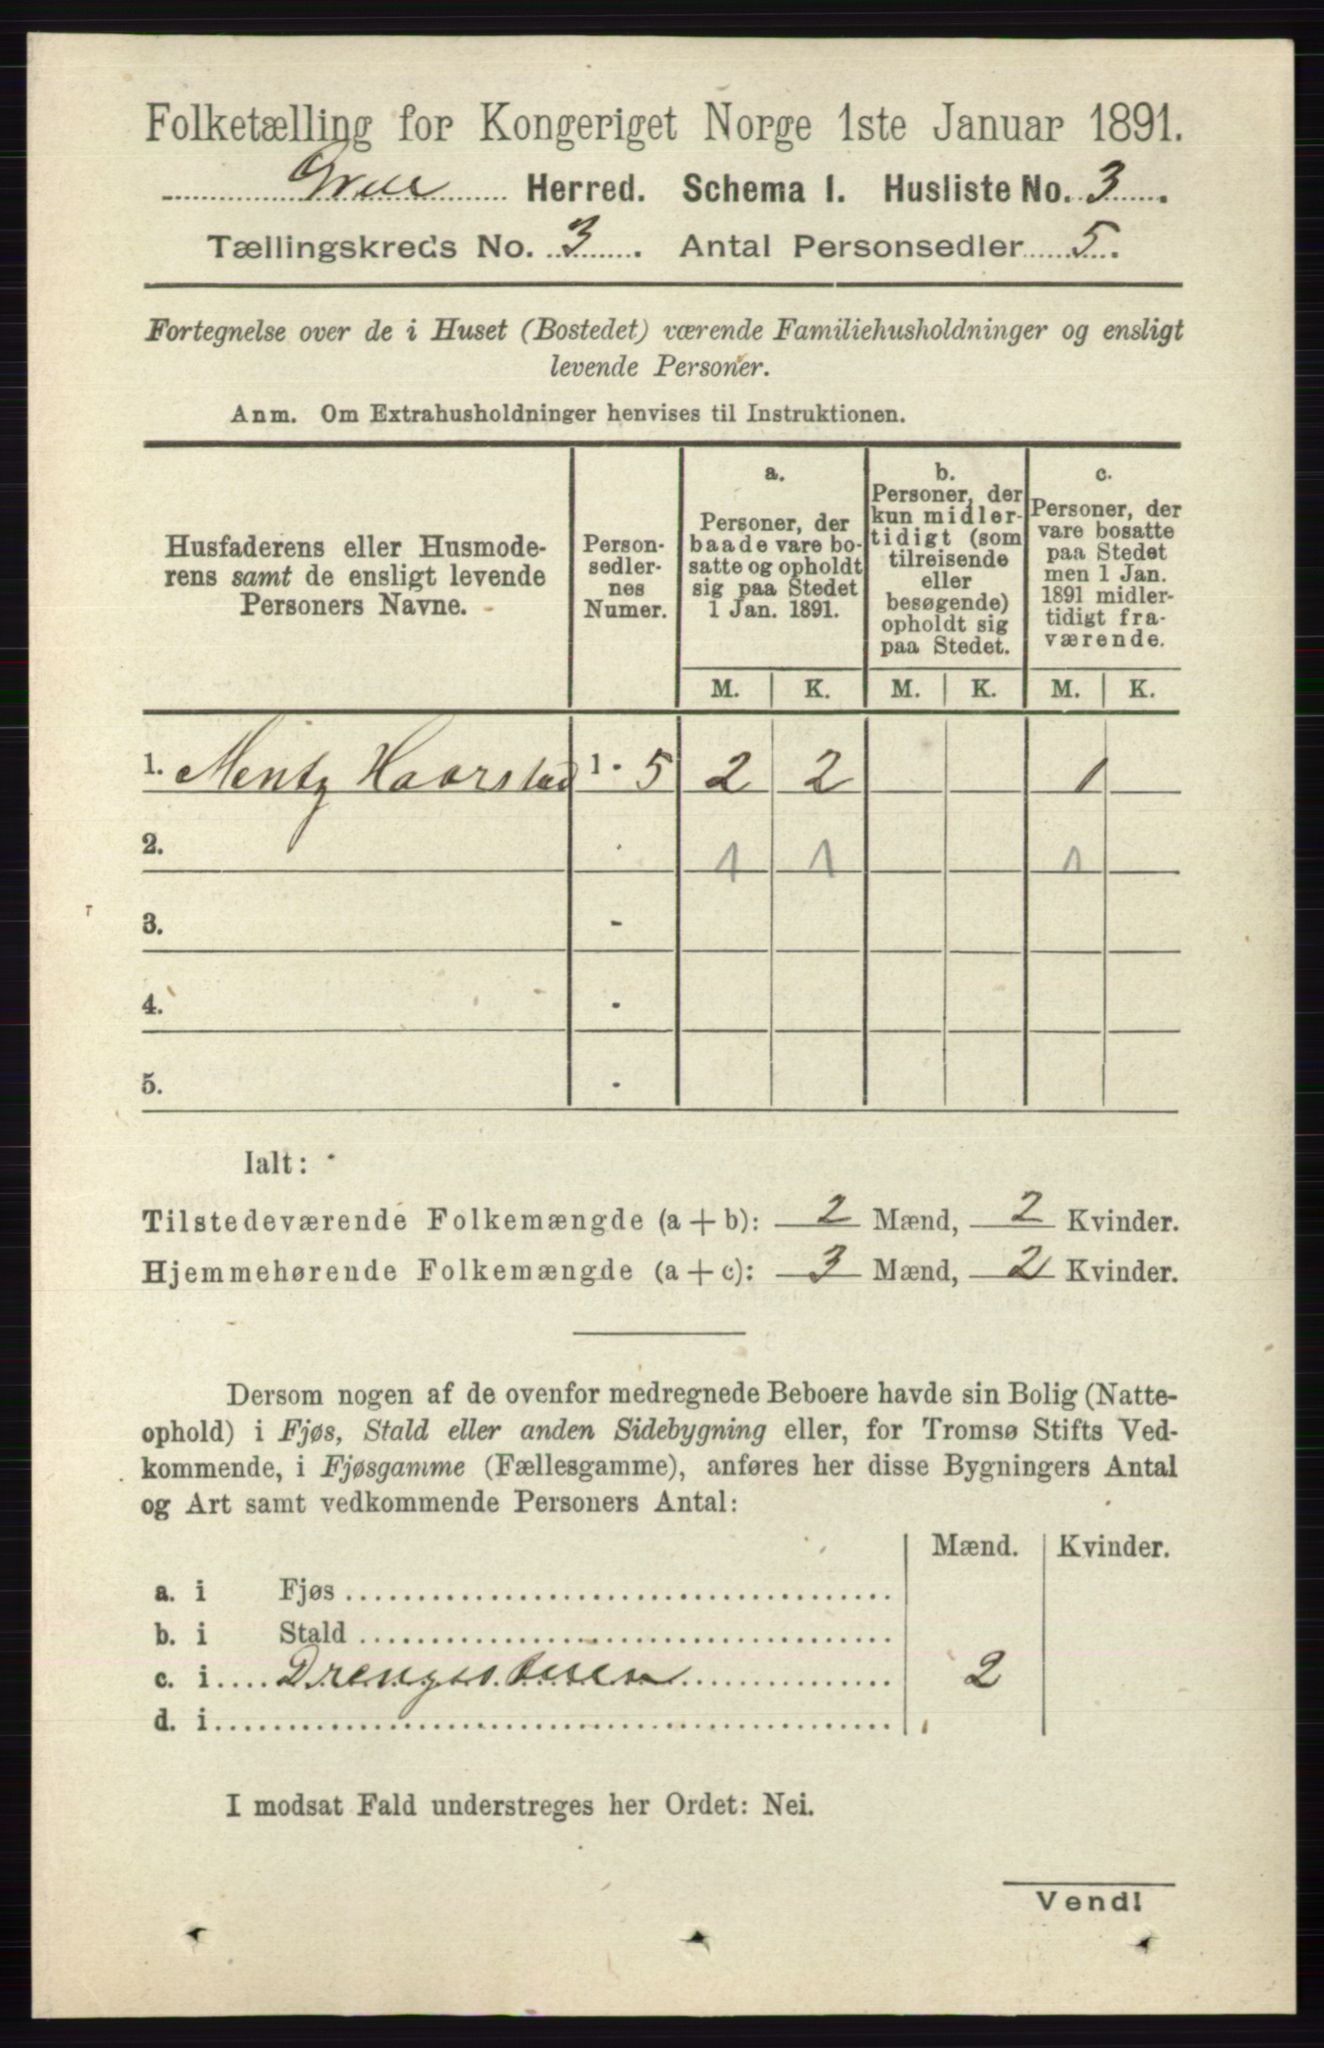 Folketælling for Kongeriget Norge 1ste Januar 1891.
Grue Herred. Schema I. Husliste No. 3.
Tællingskreds No. 3. Antal Personsedler 5.
Fortegnelse over de i Huset (Bostedet) værende Familiehusholdninger og ensligt
levende Personer.
Anm. Om Extrahusholdninger henvises til Instruktionen.
Husfaderens eller Husmode-
rens samt de ensligt levende
Personers Navne.
Person-
sedler-
nes
Numer.
a.
Personer, der
baade vare bo-
satte og opholdt
sig paa Stedet
1 Jan. 1891.
b.
Personer, der
kun midler-
tidigt (som
tilreisende
eller
besøgende)
opholdt sig
paa Stedet.
c.
Personer, der
vare bosatte
paa Stedet
men 1 Jan.
1891 midler-
tidigt fra-
værende.
M. K. M. K. M. K.
1. Mentz Haarstad 1 - 5 2 2 1
2. - 1 1 1
3. -
4. -
5. -
Ialt:
Tilstedeværende Folkemængde (a + b): 2 Mænd, 2 Kvinder.
Hjemmehørende Folkemængde (a + c): 3 Mænd, 2 Kvinder.
Dersom nogen af de ovenfor medregnede Beboere havde sin Bolig (Natte-
ophold) i Fjøs, Stald eller anden Sidebygning eller, for Tromsø Stifts Ved-
kommende, i Fjøsgamme (Fællesgamme), anføres her disse Bygningers Antal
og Art samt vedkommende Personers Antal:
Mænd. Kvinder.
a. i Fjøs
b. i Stald
c. i Drengestuen 2
d. i
I modsat Fald understreges her Ordet: Nei.
Vend!